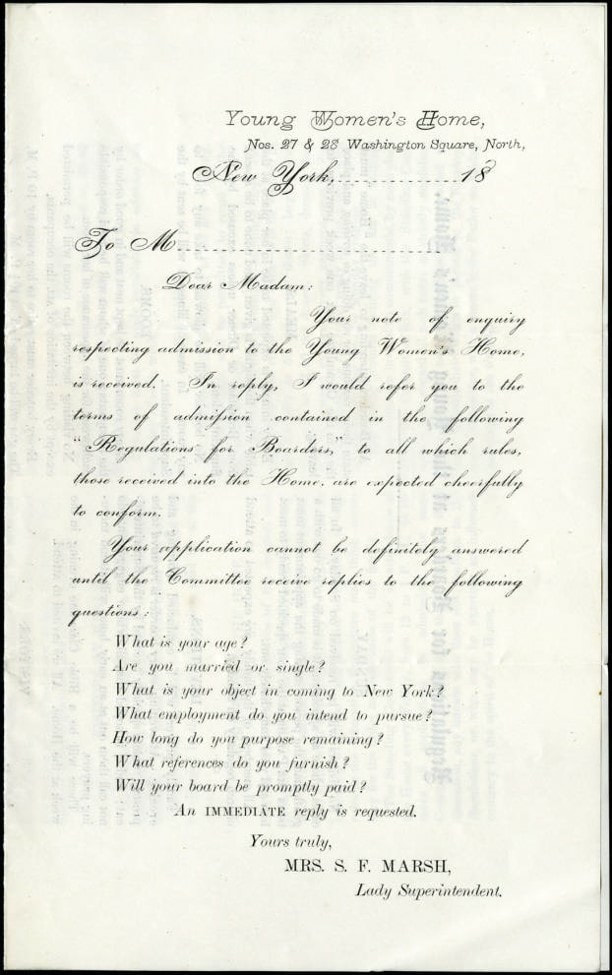 Young Women's Home,
Nos. 27 & 28 Washington Square, North,
New York, ........................ 18
To M ................................................
Dear Madam:
Your note of enquiry
respecting admission to the Young Women's Home,
is received. In reply, I would refer you to the
terms of admission contained in the following
"Regulations for Boarders," to all which rules,
those received into the Home, are expected cheerfully
to conform.
Your application cannot be definitely answered
until the Committee receive replies to the following
questions:
What is your age?
Are you married or single?
What is your object in coming to New York?
What employment do you intend to pursue?
How long do you purpose remaining?
What references do you furnish?
Will your board be promptly paid?
An IMMEDIATE reply is requested.
Yours truly,
MRS. S. F. MARSH,
Lady Superintendent.